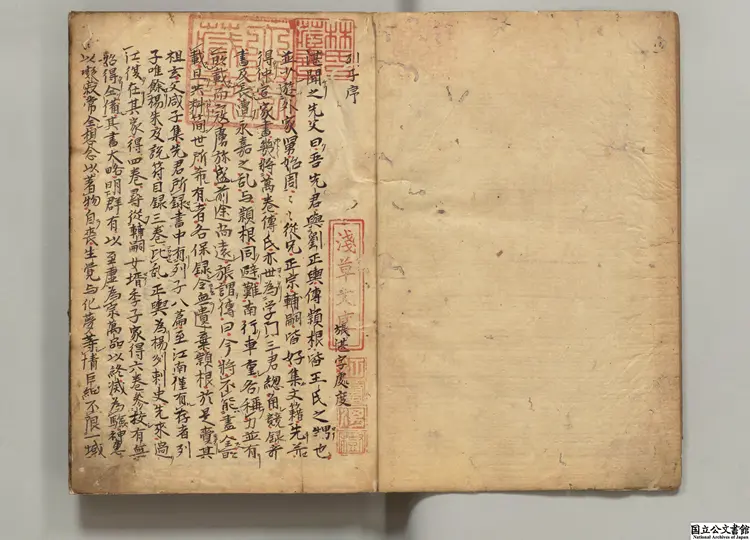 列子序
張湛字處度
湛聞之先父曰吾先君與劉正輿傅穎根皆王氏之甥也
並少遊外家舅始周〻〻從兄正宗輔嗣皆好集文籍先并
得仲宣家書幾將萬卷傅氏亦世為学門三君總角競録奇
書及長遭永嘉之乱与穎根同避難南行車重各稱力並有
所載而寇虜弥盛前途尚遠張謂傅曰今將不能盡全所
載且共料簡世所希有者各保録令無遺棄穎根於是賷其
祖玄父咸子集先君所録書中有列子八篇至江南僅有存者列
子唯餘楊朱及説符目録三卷比乱正輿為楊州刺史先來過
江復在其家得四卷尋從輔嗣女壻季子家得六卷參校有無
始得全備其書大略明群有以至虚為宗萬品以終滅為驗神惠
以凝寂常全想念以著物自喪生覚与化夢等情巨細不限一域
淺草文庫
国立公文書館
National Archives of Japan